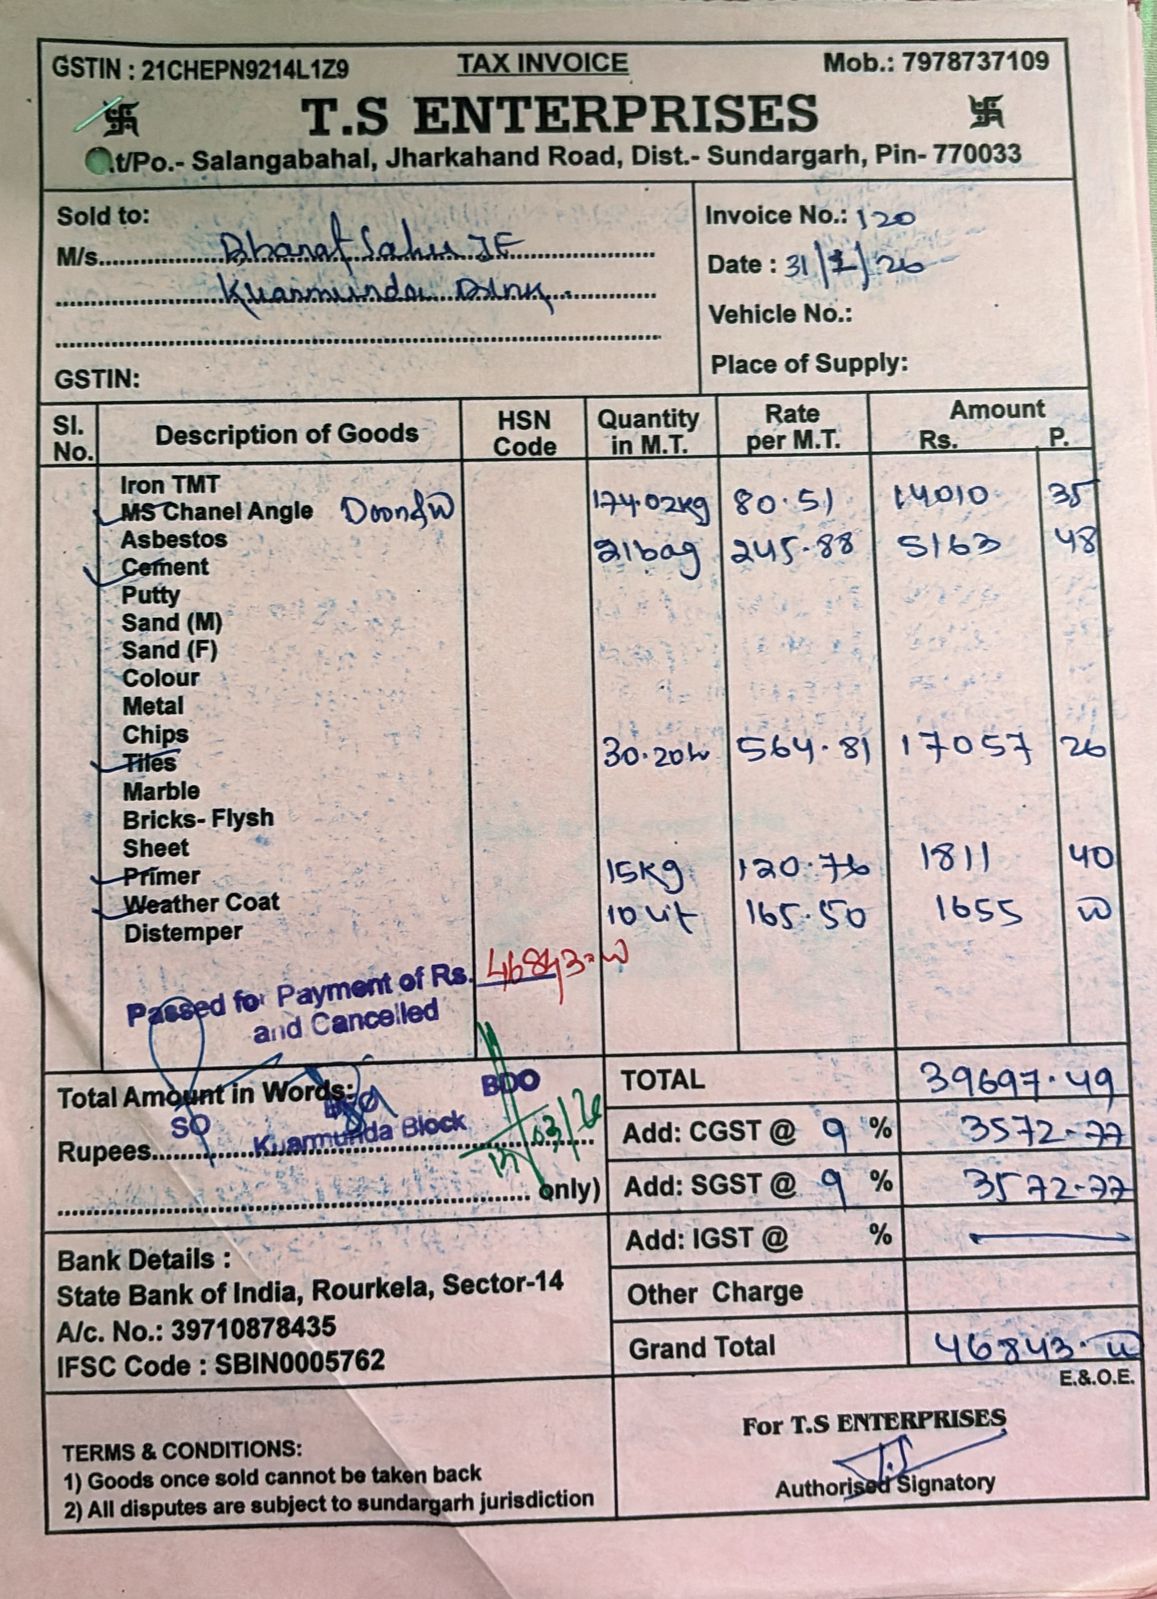 GSTIN : 21CHEPN9214L1Z9
TAX INVOICE
Mob.: 7978737109
T.S ENTERPRISES
At/Po.- Salangabahal, Jharkahand Road, Dist.- Sundargarh, Pin- 770033
Sold to:
M/s. Bharat Sahu JE
Kuarmunda Block
GSTIN:
Invoice No.: 120
Date : 31/1/26
Vehicle No.:
Place of Supply:
Sl. No. Description of Goods HSN Code Quantity in M.T. Rate per M.T. Amount Rs. P.
Iron TMT
MS Chanel Angle 174.02kg 80.51 14010 35
Asbestos
Cement 21bag 245.88 5163 48
Putty
Sand (M)
Sand (F)
Colour
Metal
Chips
Tiles 30.20 564.81 17057 26
Marble
Bricks- Flysh
Sheet
Primer 15kg 120.76 1811 40
Weather Coat 10 lit 165.50 1655 00
Distemper
Passed for Payment of Rs. 46843.00
and Cancelled
SO BDO
Kuarmunda Block
Total Amount in Words:
Rupees
only)
TOTAL 39697.49
Add: CGST @ 9 % 3572-77
Add: SGST @ 9 % 3572-77
Add: IGST @ %
Other Charge
Grand Total 46843.00
E.&.O.E.
Bank Details :
State Bank of India, Rourkela, Sector-14
A/c. No.: 39710878435
IFSC Code : SBIN0005762
TERMS & CONDITIONS:
1) Goods once sold cannot be taken back
2) All disputes are subject to sundargarh jurisdiction
For T.S ENTERPRISES
Authorised Signatory